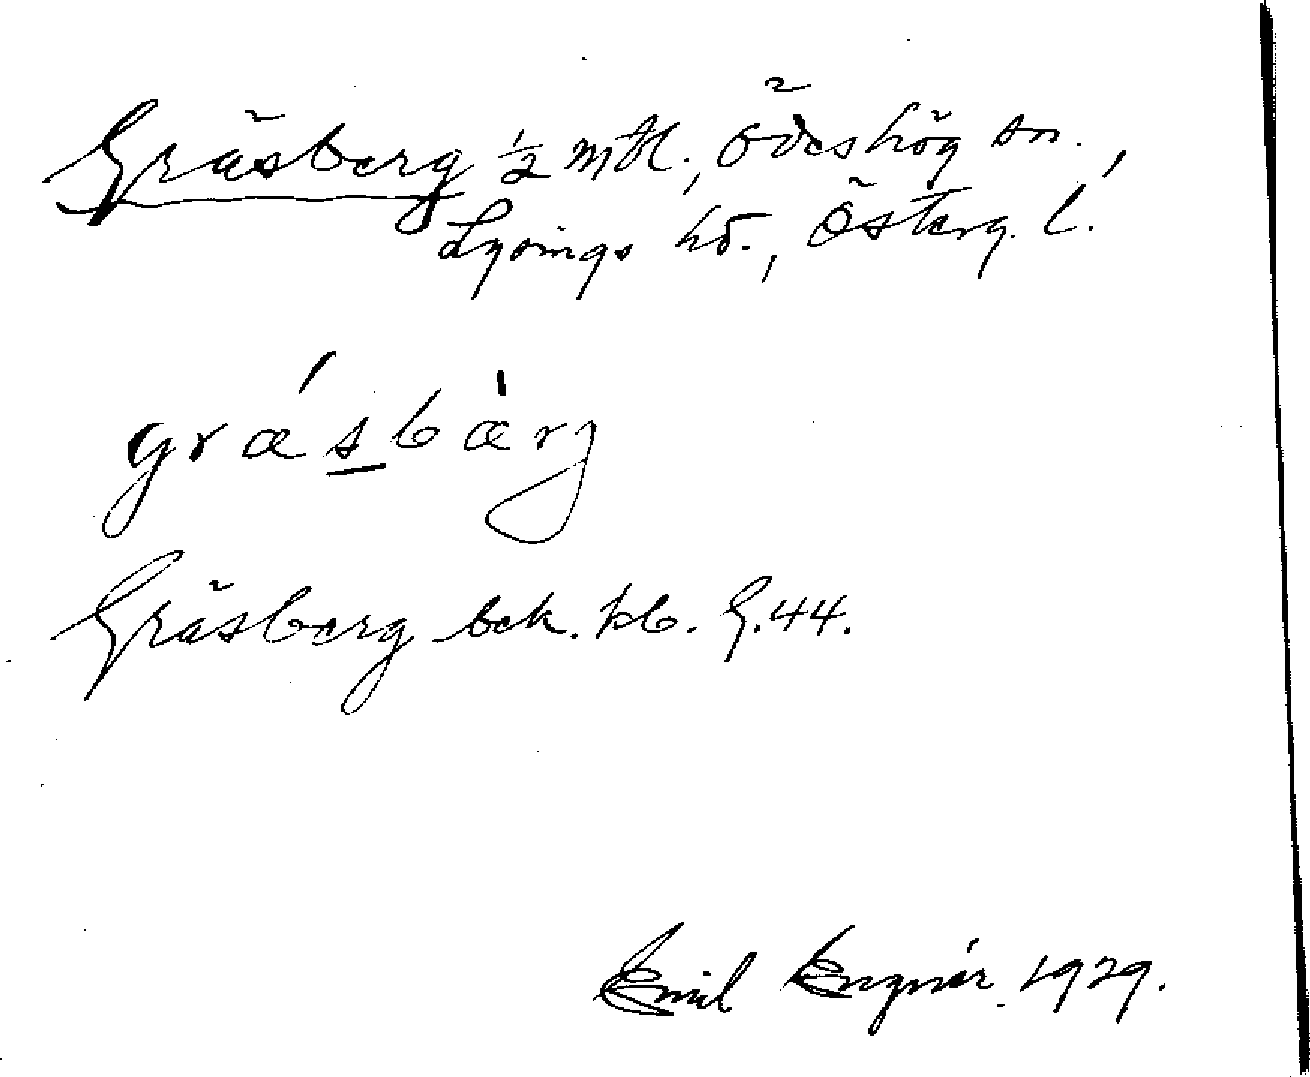 Gräsberg ½ mtl., Ödeshög sn.,
Lysings hd., Österg. l.
græ´sbæ̀rj
Gräsberg bek. kb. G.44.
Emil Engnér. 1929.